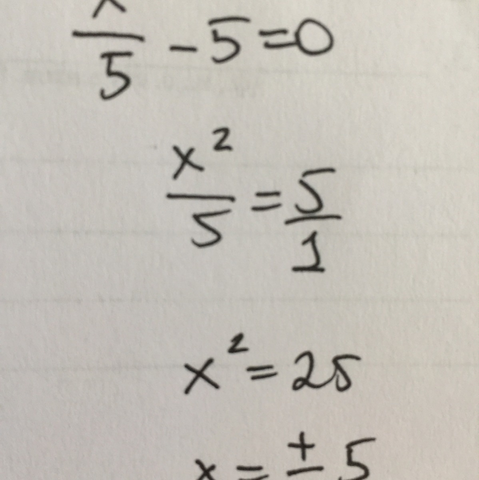 x/5 - 5 = 0
x²/5 = 5/1
x² = 25
x = ± 5